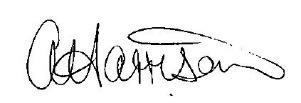 A Harrison